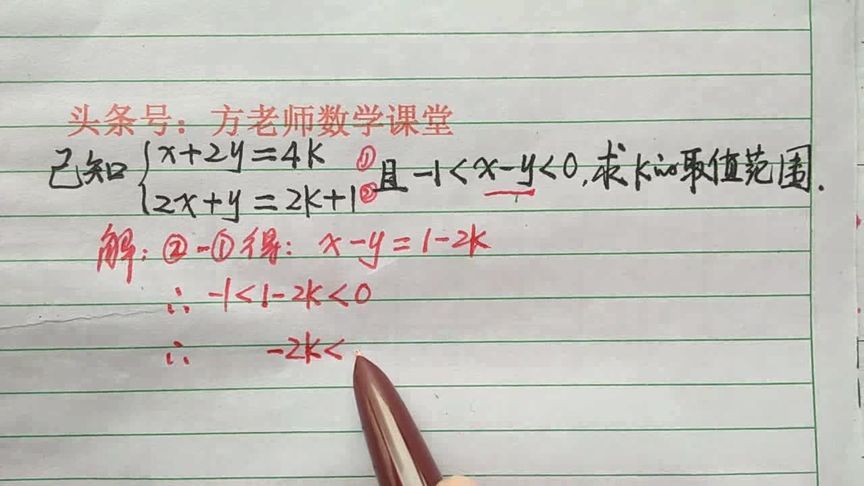 头条号：方老师数学课堂
已知{x+2y=4k ① 
2x+y=2k+1 ② 且 -1<x-y<0,求k的取值范围.
解:②-①得: x-y=1-2k
∴ -1<1-2k<0
∴ -2k<